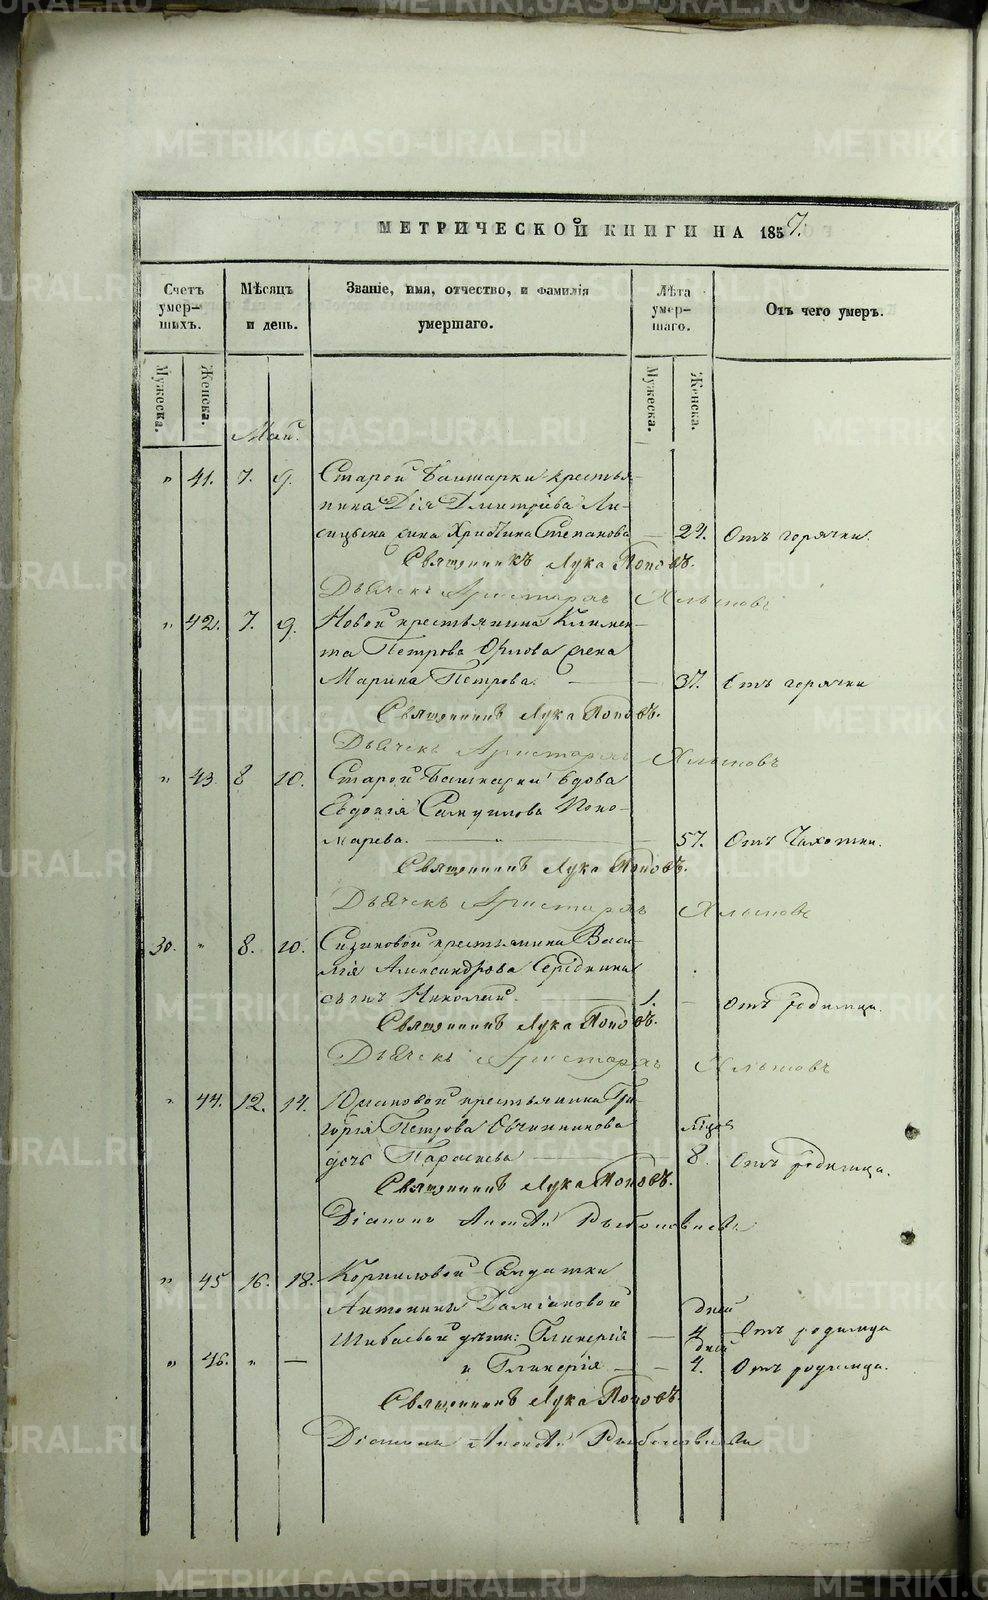 МЕТРИЧЕСКОЙ КНИГИ НА 1857.
Счетъ умер-шихъ.
Мѣсяцъ и день.
Званіе, имя, отчество, и фамилія умершаго.
Лѣта умер-шаго.
Отъ чего умеръ.
Мужеска.
Женска.
Мужеска.
Женска.
Май.
" 41. 7. 9. Старой Башкарки крестья-
нина Дмитріева Ли-
сицына жена Христина Степанова — 24. Отъ горячки.
Священникъ Лука Поповъ.
Дьячекъ Аристархъ
" 42. 7. 9. Новой крестьянина Климен-
та Петрова Орлова жена
Марина Петрова. — 37. Отъ горячки
Священникъ Лука Поповъ.
Дьячекъ Аристархъ
" 43. 8 10. Старой Башкарки вдова
Евдокія Самуилова Поно-
марева. — 57. Отъ Чахотки.
Священникъ Лука Поповъ.
Дьячекъ Аристархъ
30. " 8. 10. Сизиковой крестьянина Васи-
лія Александрова Середкина
сынъ Николай. 1. — Отъ родимца.
Священникъ Лука Поповъ.
Дьячекъ Аристархъ
" 44. 12. 14. крестьянина Гри-
горія Петрова Овчинникова мѣсяц
дочь Параскева — 8. Отъ родимца.
Священникъ Лука Поповъ.
Діаконъ
" 45 16. 18. Корниловой Солдатки
Антонины Даміановой дней
Шибаевой дѣти: Гликерія — 4 Отъ родимца
дней
" 46. " — и Гликерія — — 4. Отъ родимца.
Священникъ Лука Поповъ.
Діаконъ
METRIKI.GASO-URAL.RU